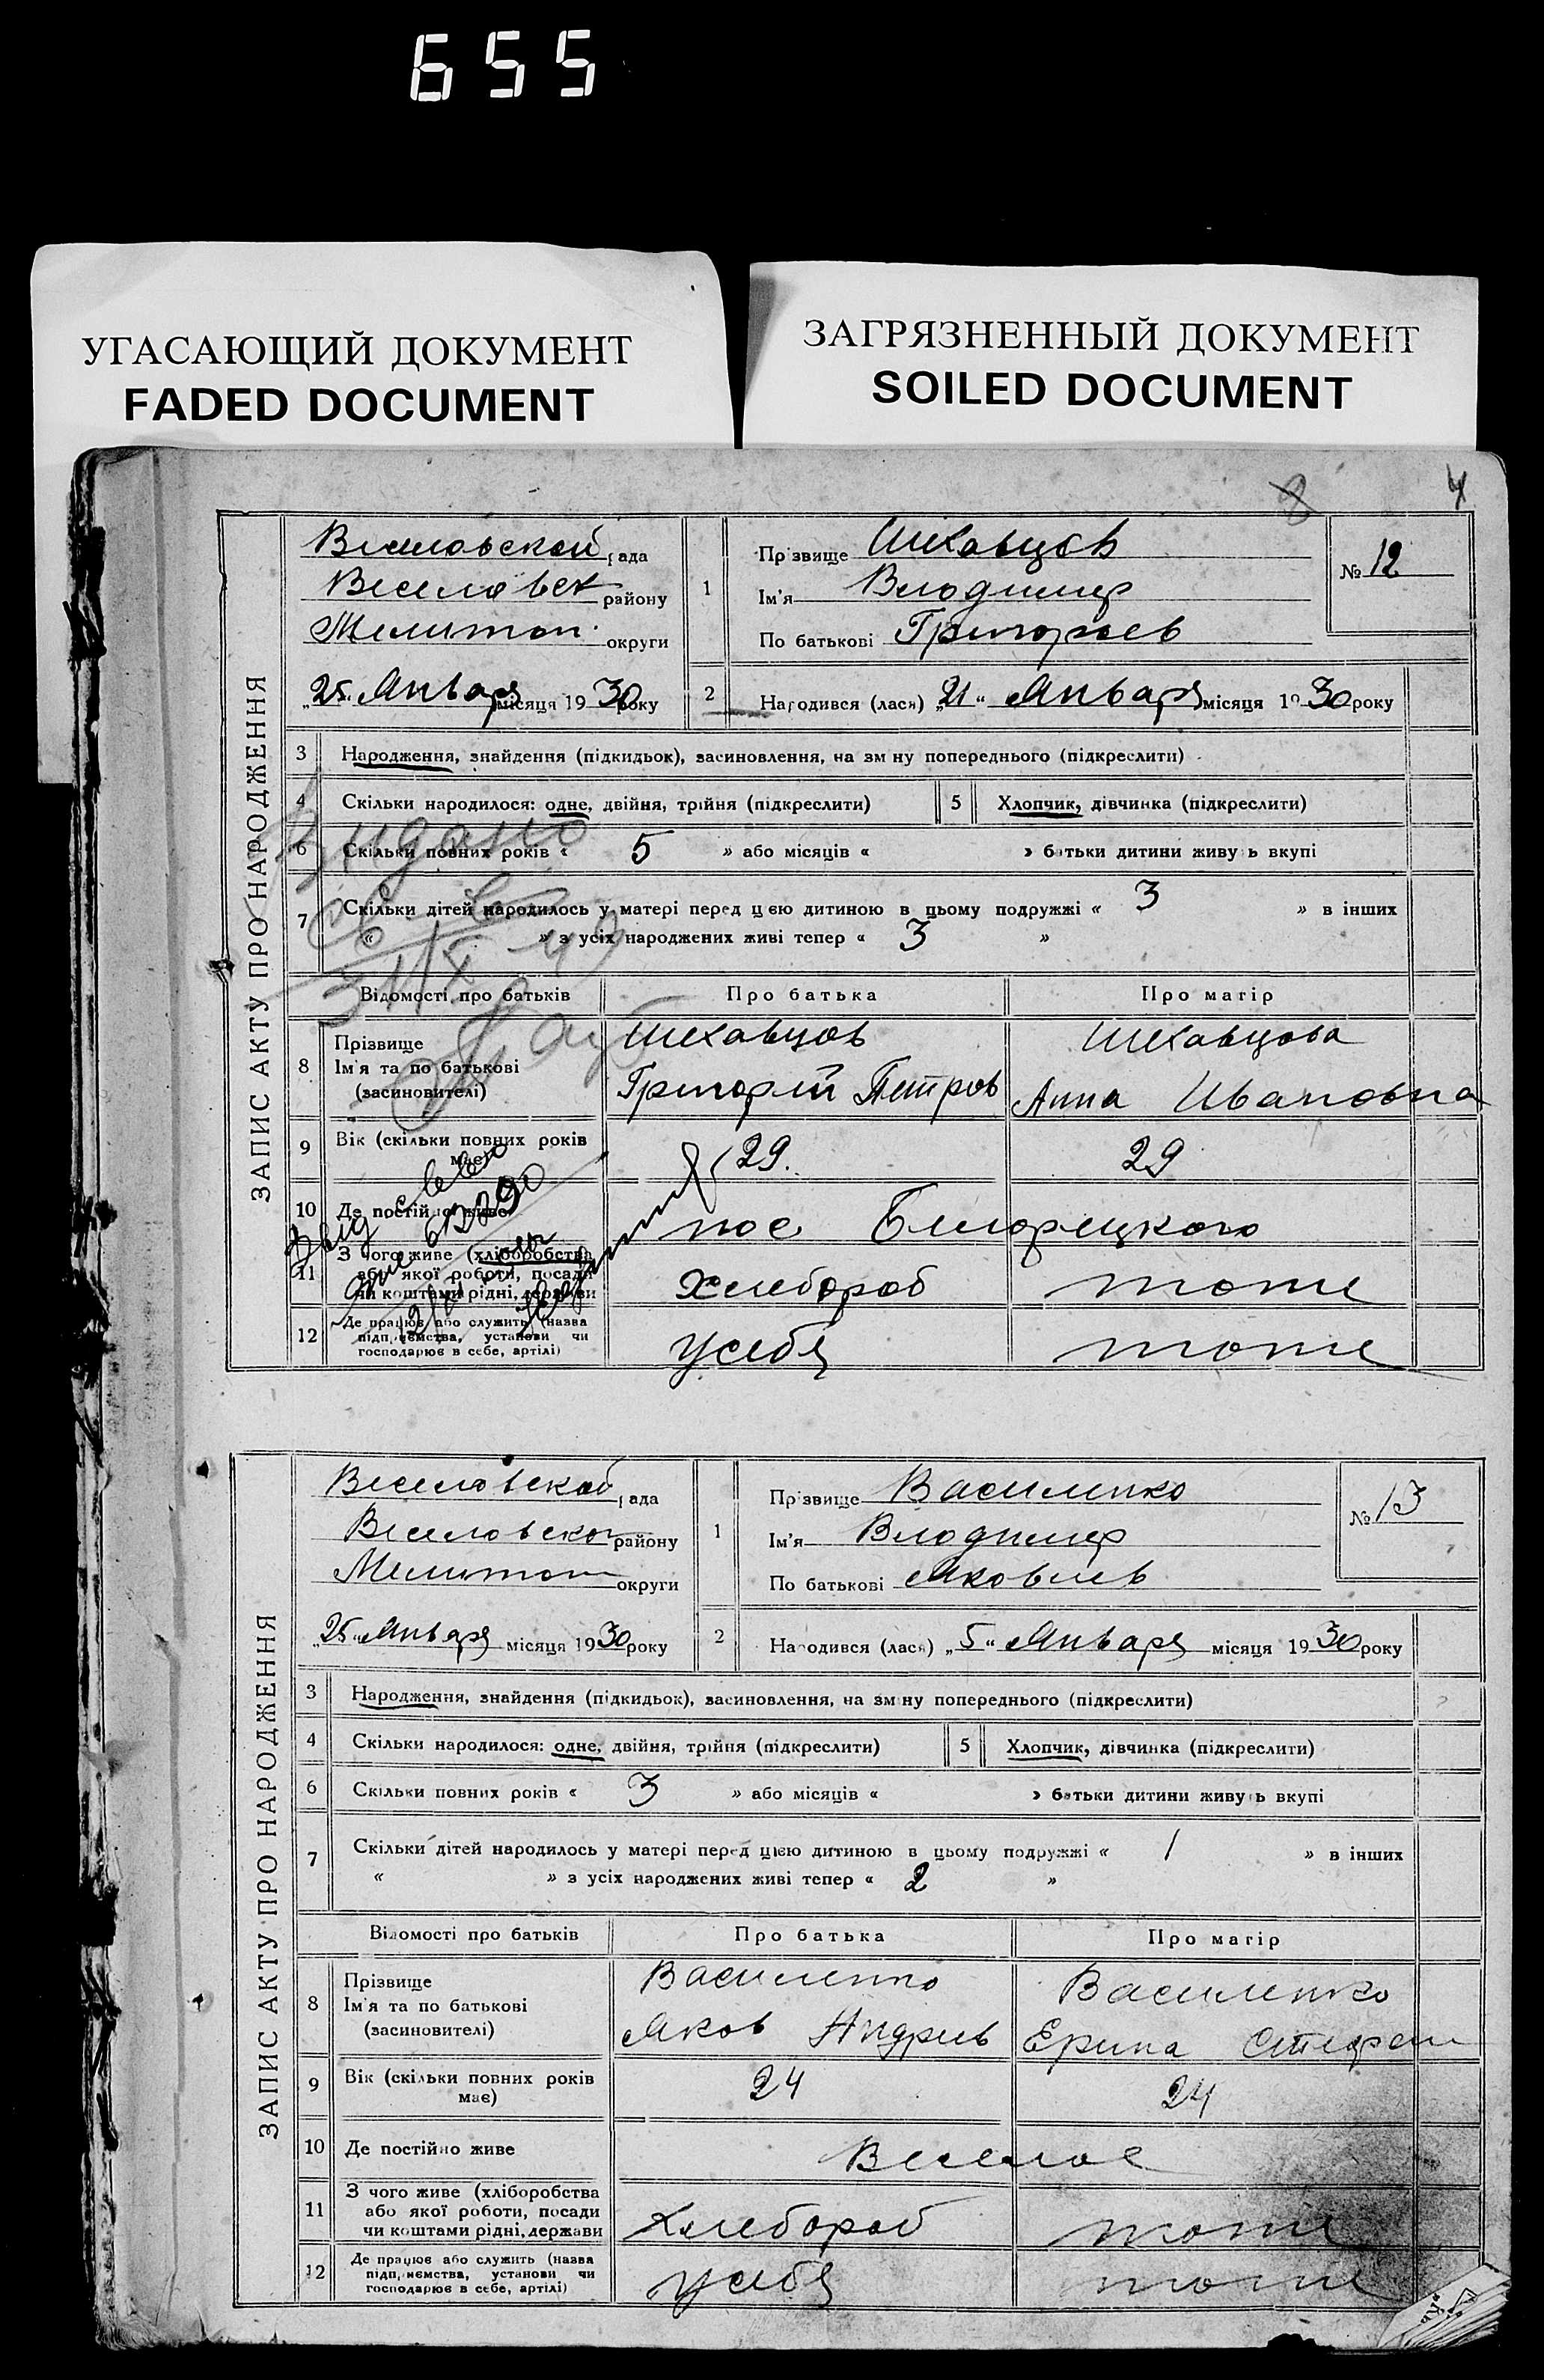 655
УГАСАЮЩИЙ ДОКУМЕНТ
FADED DOCUMENT
ЗАГРЯЗНЕННЫЙ ДОКУМЕНТ
SOILED DOCUMENT
8 4
ЗАПИС АКТУ ПРО НАРОДЖЕННЯ
Веселовской рада
Веселовск району
Мелитоп. округи
„25“ Января місяця 1930 року
1 Прізвище Шеховцов
Ім'я Володимир
По батькові Григорьев
№ 12
2 Народився (лася) „21“ Января місяця 1930 року
3 Народження, знайдення (підкидьок), засиновлення, на зміну попереднього (підкреслити)
4 Скільки народилося: одне, двійня, трійня (підкреслити) 5 Хлопчик, дівчинка (підкреслити)
6 Скільки повних років « 5 » або місяців « » батьки дитини живуть вкупі
7 Скільки дітей народилось у матері перед цією дитиною в цьому подружжі « 3 » в інших
« » з усіх народжених живі тепер « 3 »
Видано
Відомості про батьків Про батька Про матір
8 Прізвище Шеховцов Шеховцова
Ім'я та по батькові Григорій Петров Анна Ивановна
(засиновителі)
9 Вік (скільки повних років має) 29. 29
10 Де постійно живе пос Белорецкого
11 З чого живе (хліборобства Хлебороб тоже
або якої роботи, посади
чи коштами рідні, держави
12 Де працює або служить (назва усебя тоже
підприємства, установи чи
господарює в себе, артілі)
ЗАПИС АКТУ ПРО НАРОДЖЕННЯ
Веселовской рада
Веселовског району
Мелитоп округи
„25“ Января місяця 1930 року
1 Прізвище Василенко
Ім'я Володимир
По батькові Яковлев
№ 13
2 Народився (лася) „5“ Января місяця 1930 року
3 Народження, знайдення (підкидьок), засиновлення, на зміну попереднього (підкреслити)
4 Скільки народилося: одне, двійня, трійня (підкреслити) 5 Хлопчик, дівчинка (підкреслити)
6 Скільки повних років « 3 » або місяців « » батьки дитини живуть вкупі
7 Скільки дітей народилось у матері перед цією дитиною в цьому подружжі « 1 » в інших
« » з усіх народжених живі тепер « 2 »
Відомості про батьків Про батька Про матір
8 Прізвище Василенко Василенко
Ім'я та по батькові Яков Андриев Ерина Стефан
(засиновителі)
9 Вік (скільки повних років має) 24 24
10 Де постійно живе Веселое
11 З чого живе (хліборобства Хлебороб тоже
або якої роботи, посади
чи коштами рідні, держави
12 Де працює або служить (назва усебя тоже
підприємства, установи чи
господарює в себе, артілі)